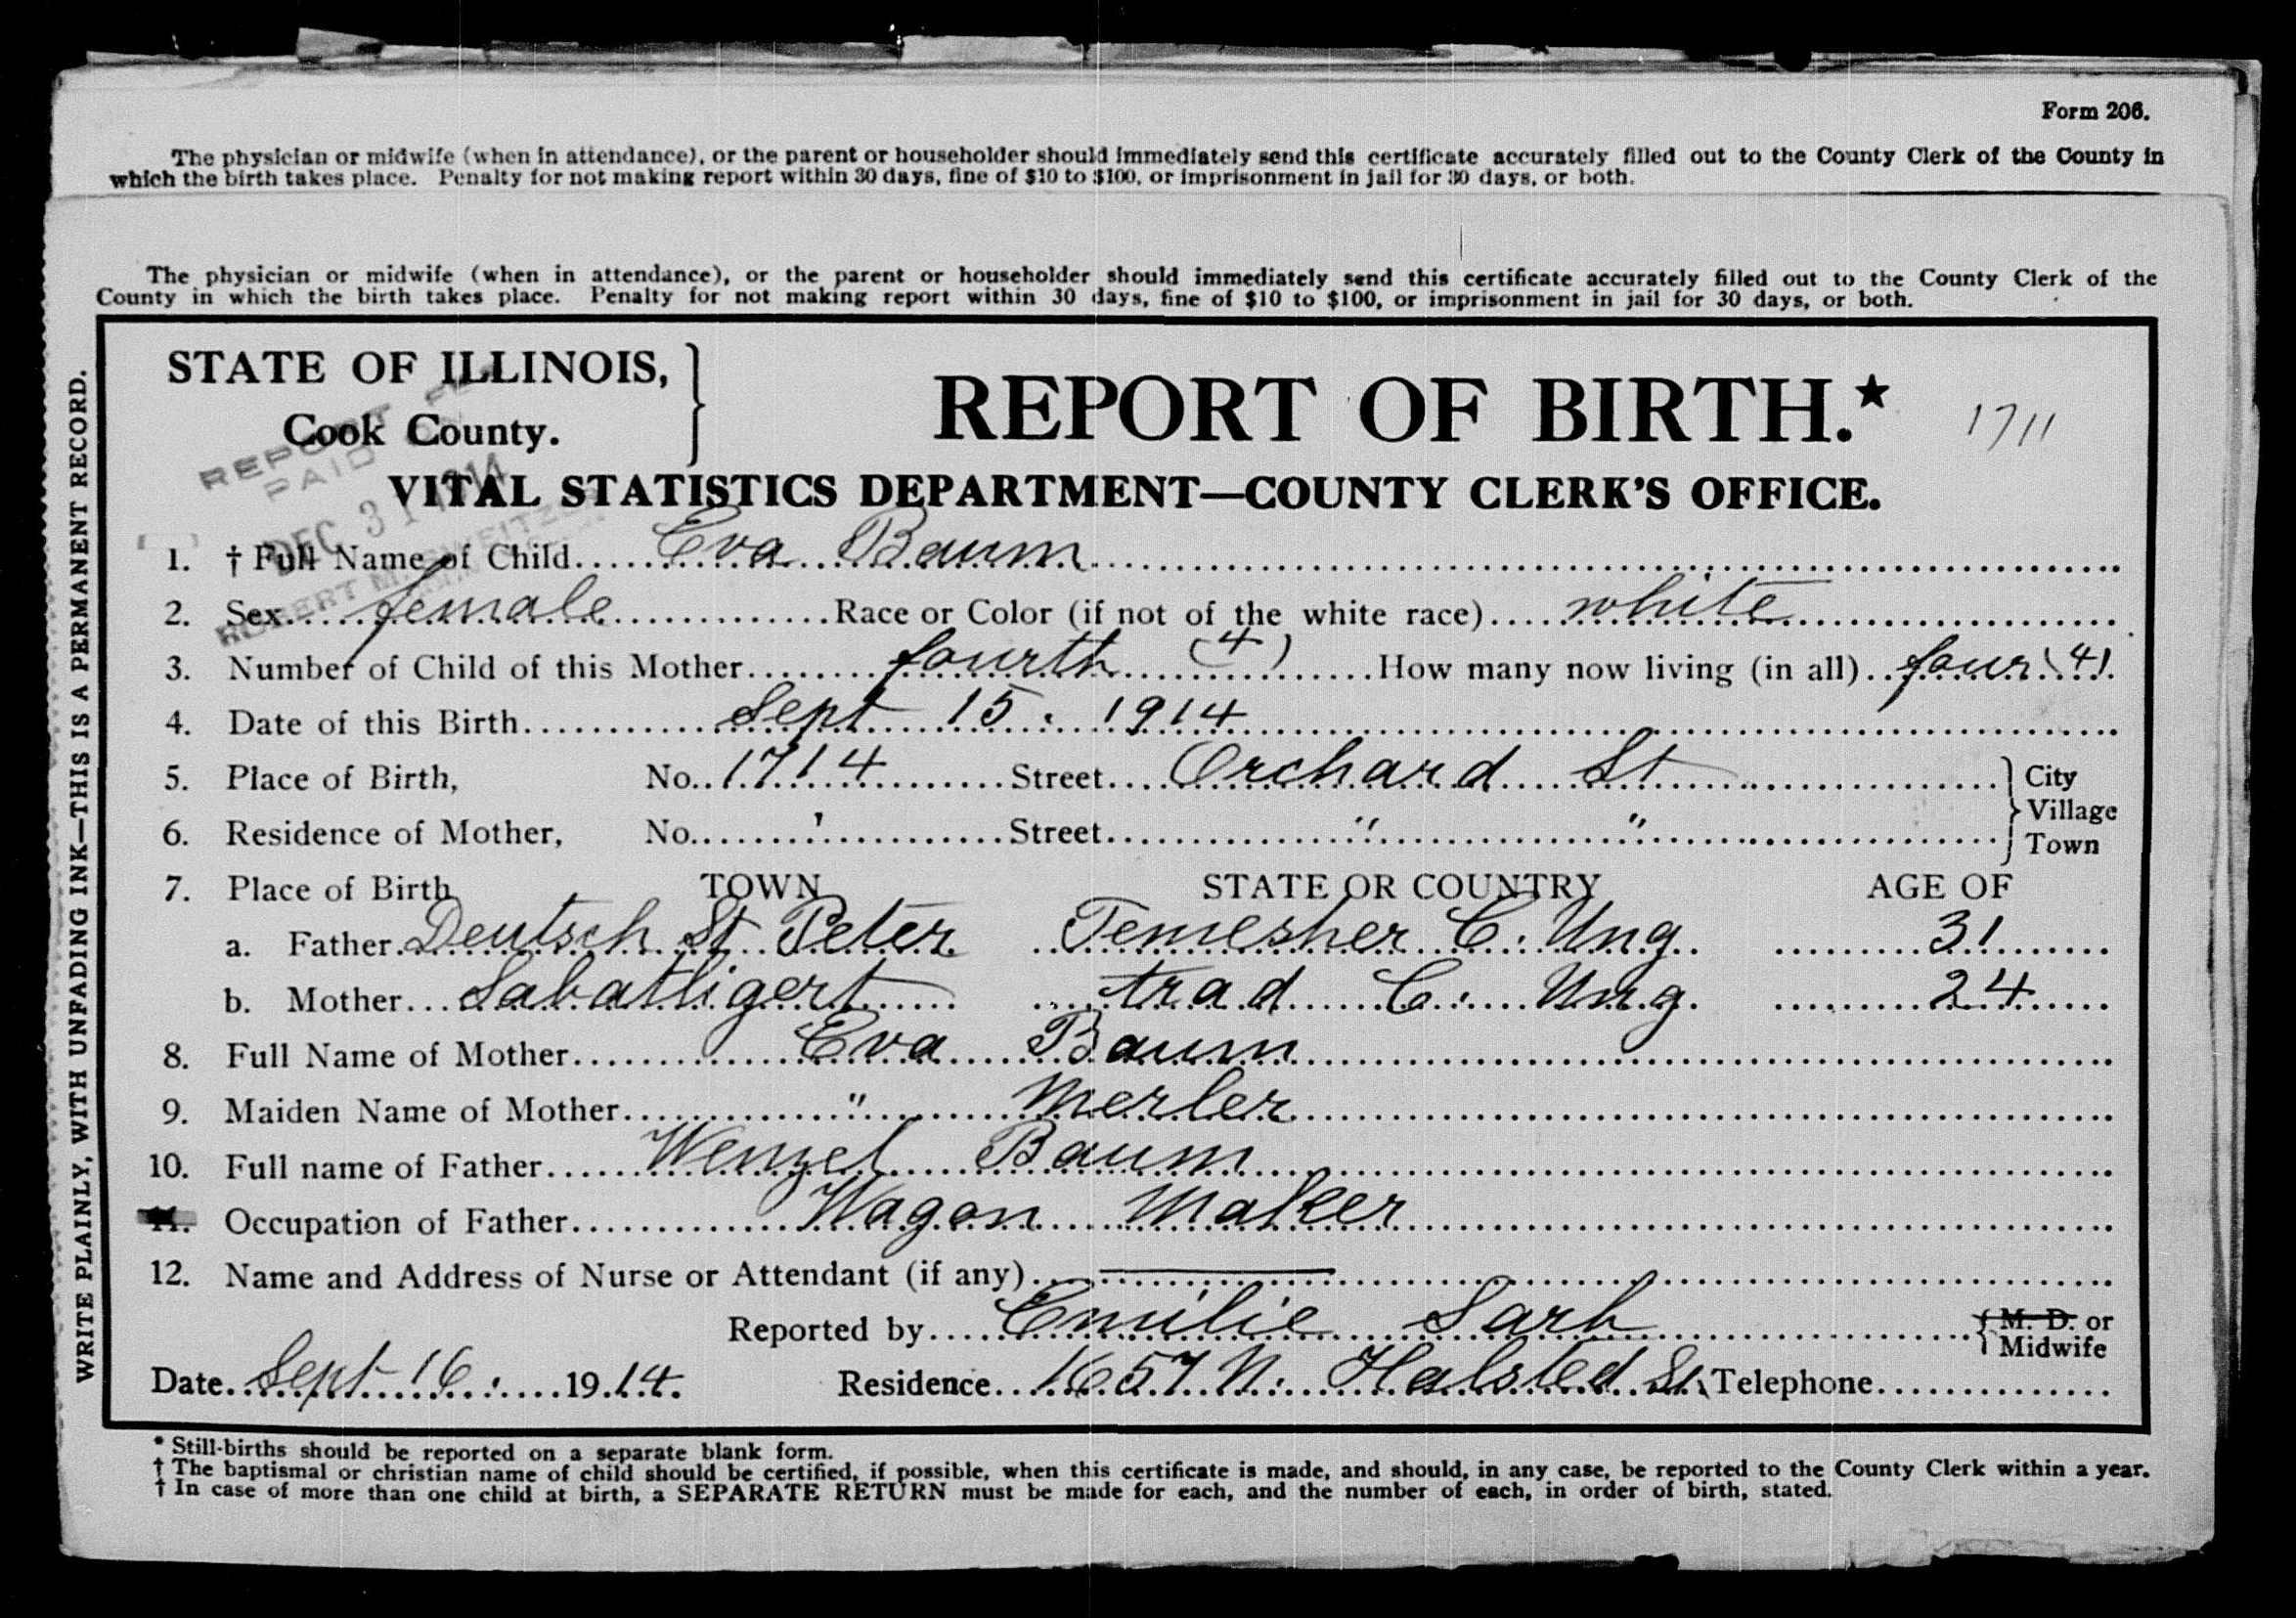 Form 206.
The physician or midwife (when in attendance), or the parent or householder should immediately send this certificate accurately filled out to the County Clerk of the County in
which the birth takes place. Penalty for not making report within 30 days, fine of $10 to $100, or imprisonment in jail for 30 days, or both.
The physician or midwife (when in attendance), or the parent or householder should immediately send this certificate accurately filled out to the County Clerk of the
County in which the birth takes place. Penalty for not making report within 30 days, fine of $10 to $100, or imprisonment in jail for 30 days, or both.
WRITE PLAINLY, WITH UNFADING INK—THIS IS A PERMANENT RECORD.
STATE OF ILLINOIS,
Cook County.
REPORT OF BIRTH.* 1711
VITAL STATISTICS DEPARTMENT—COUNTY CLERK'S OFFICE.
REPORT
PAID
DEC 31 1914
ROBERT M. SWEITZER
1. † Full Name of Child Eva Baum
2. Sex female Race or Color (if not of the white race) white
3. Number of Child of this Mother fourth (4) How many now living (in all) four (4)
4. Date of this Birth Sept 15. 1914
5. Place of Birth, No. 1714 Street Orchard St City
Village
6. Residence of Mother, No. " Street " " Town
7. Place of Birth TOWN STATE OR COUNTRY AGE OF
a. Father Deutsch St. Peter Temesher C. Ung. 31
b. Mother Sabatligert Arad C. Ung. 24
8. Full Name of Mother Eva Baum
9. Maiden Name of Mother " Merler
10. Full name of Father Wenzel Baum
11. Occupation of Father Wagon Maker
12. Name and Address of Nurse or Attendant (if any)
Reported by Emilie Sarh M. D. or
Midwife
Date Sept 16. 1914. Residence 1657 N. Halsted St. Telephone
* Still-births should be reported on a separate blank form.
† The baptismal or christian name of child should be certified, if possible, when this certificate is made, and should, in any case, be reported to the County Clerk within a year.
† In case of more than one child at birth, a SEPARATE RETURN must be made for each, and the number of each, in order of birth, stated.